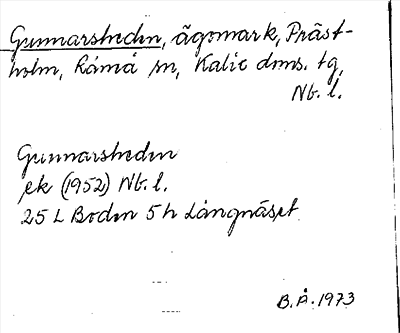 Gunnarsheden, ägomark, Präst-
holm, Råneå sn, Kalix dms. tg,
Nb. l.
Gunnarsheden
ek (1952) Nb. l.
25 L Boden 5 h Långnäset
B.Å. 1973